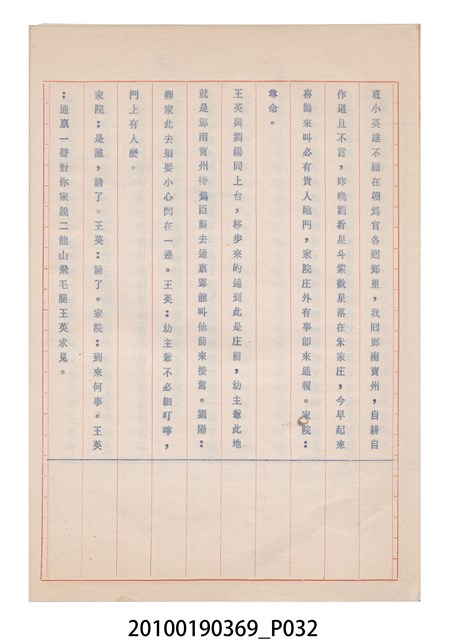 班小英雄不願在朝爲官各回鄉里，我回鄧南賓州，自耕自
作這且不言，昨晚觀看星斗紫微星落在朱家庄，今早起來
喜鵲來叫必有貴人臨門，家院庄外有事卽來通報。家院：
尊命。
王英與劉陽同上台，移步來的遠到此是庄前，幼主爺此地
就是鄧南賓州待爲臣前去通禀鄧龍叫他前來接駕。劉陽：
鄧家此去須要小心閃在一邊。王英：幼主爺不必細叮嚀，
門上有人麽。
家院：是誰，請了。王英：請了。家院：到來何事。王英
：通禀一聲對你家說二龍山飛毛腿王英求見。
20100190369_P032